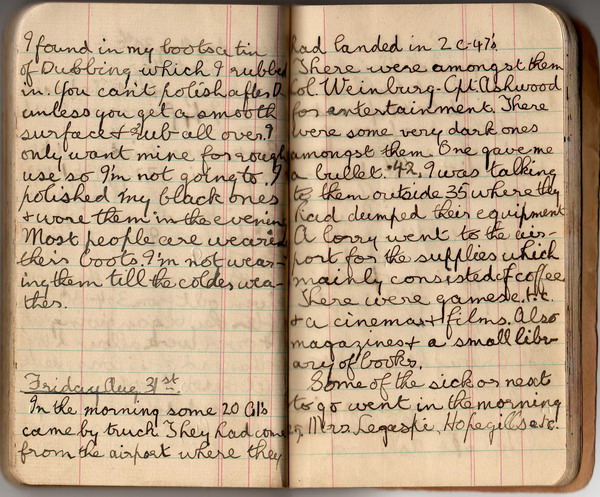 I found in my boots a tin
of Dubbing which I rubbed
in. You can't polish after D
unless you get a smooth
surface & rub all over. I
only want mine for rough
use so I'm not going to. I
polished my black ones
& wore them in the evening
Most people are wearing
their boots. I'm not wear-
ing them till the colder wea-
ther.
Friday Aug 31st.
In the morning some 20 GI's
came by truck. They had come
from the airport where they
had landed in 2 C-47's.
There were amongst them
Col. Weinburg - Cpt. Ashwood
for entertainment. There
were some very dark ones
amongst them. One gave me
a bullet. .42. I was talking
to them outside 35 where they
had dumped their equipment
A lorry went to the air-
port for the supplies which
mainly consisted of coffee.
There were games e.t.c.
& a cinema & films. Also
magazines & a small libr-
ary of books.
Some of the sick or next
to go went in the morning
eg. Mrs Legaspi, Hopegills etc.